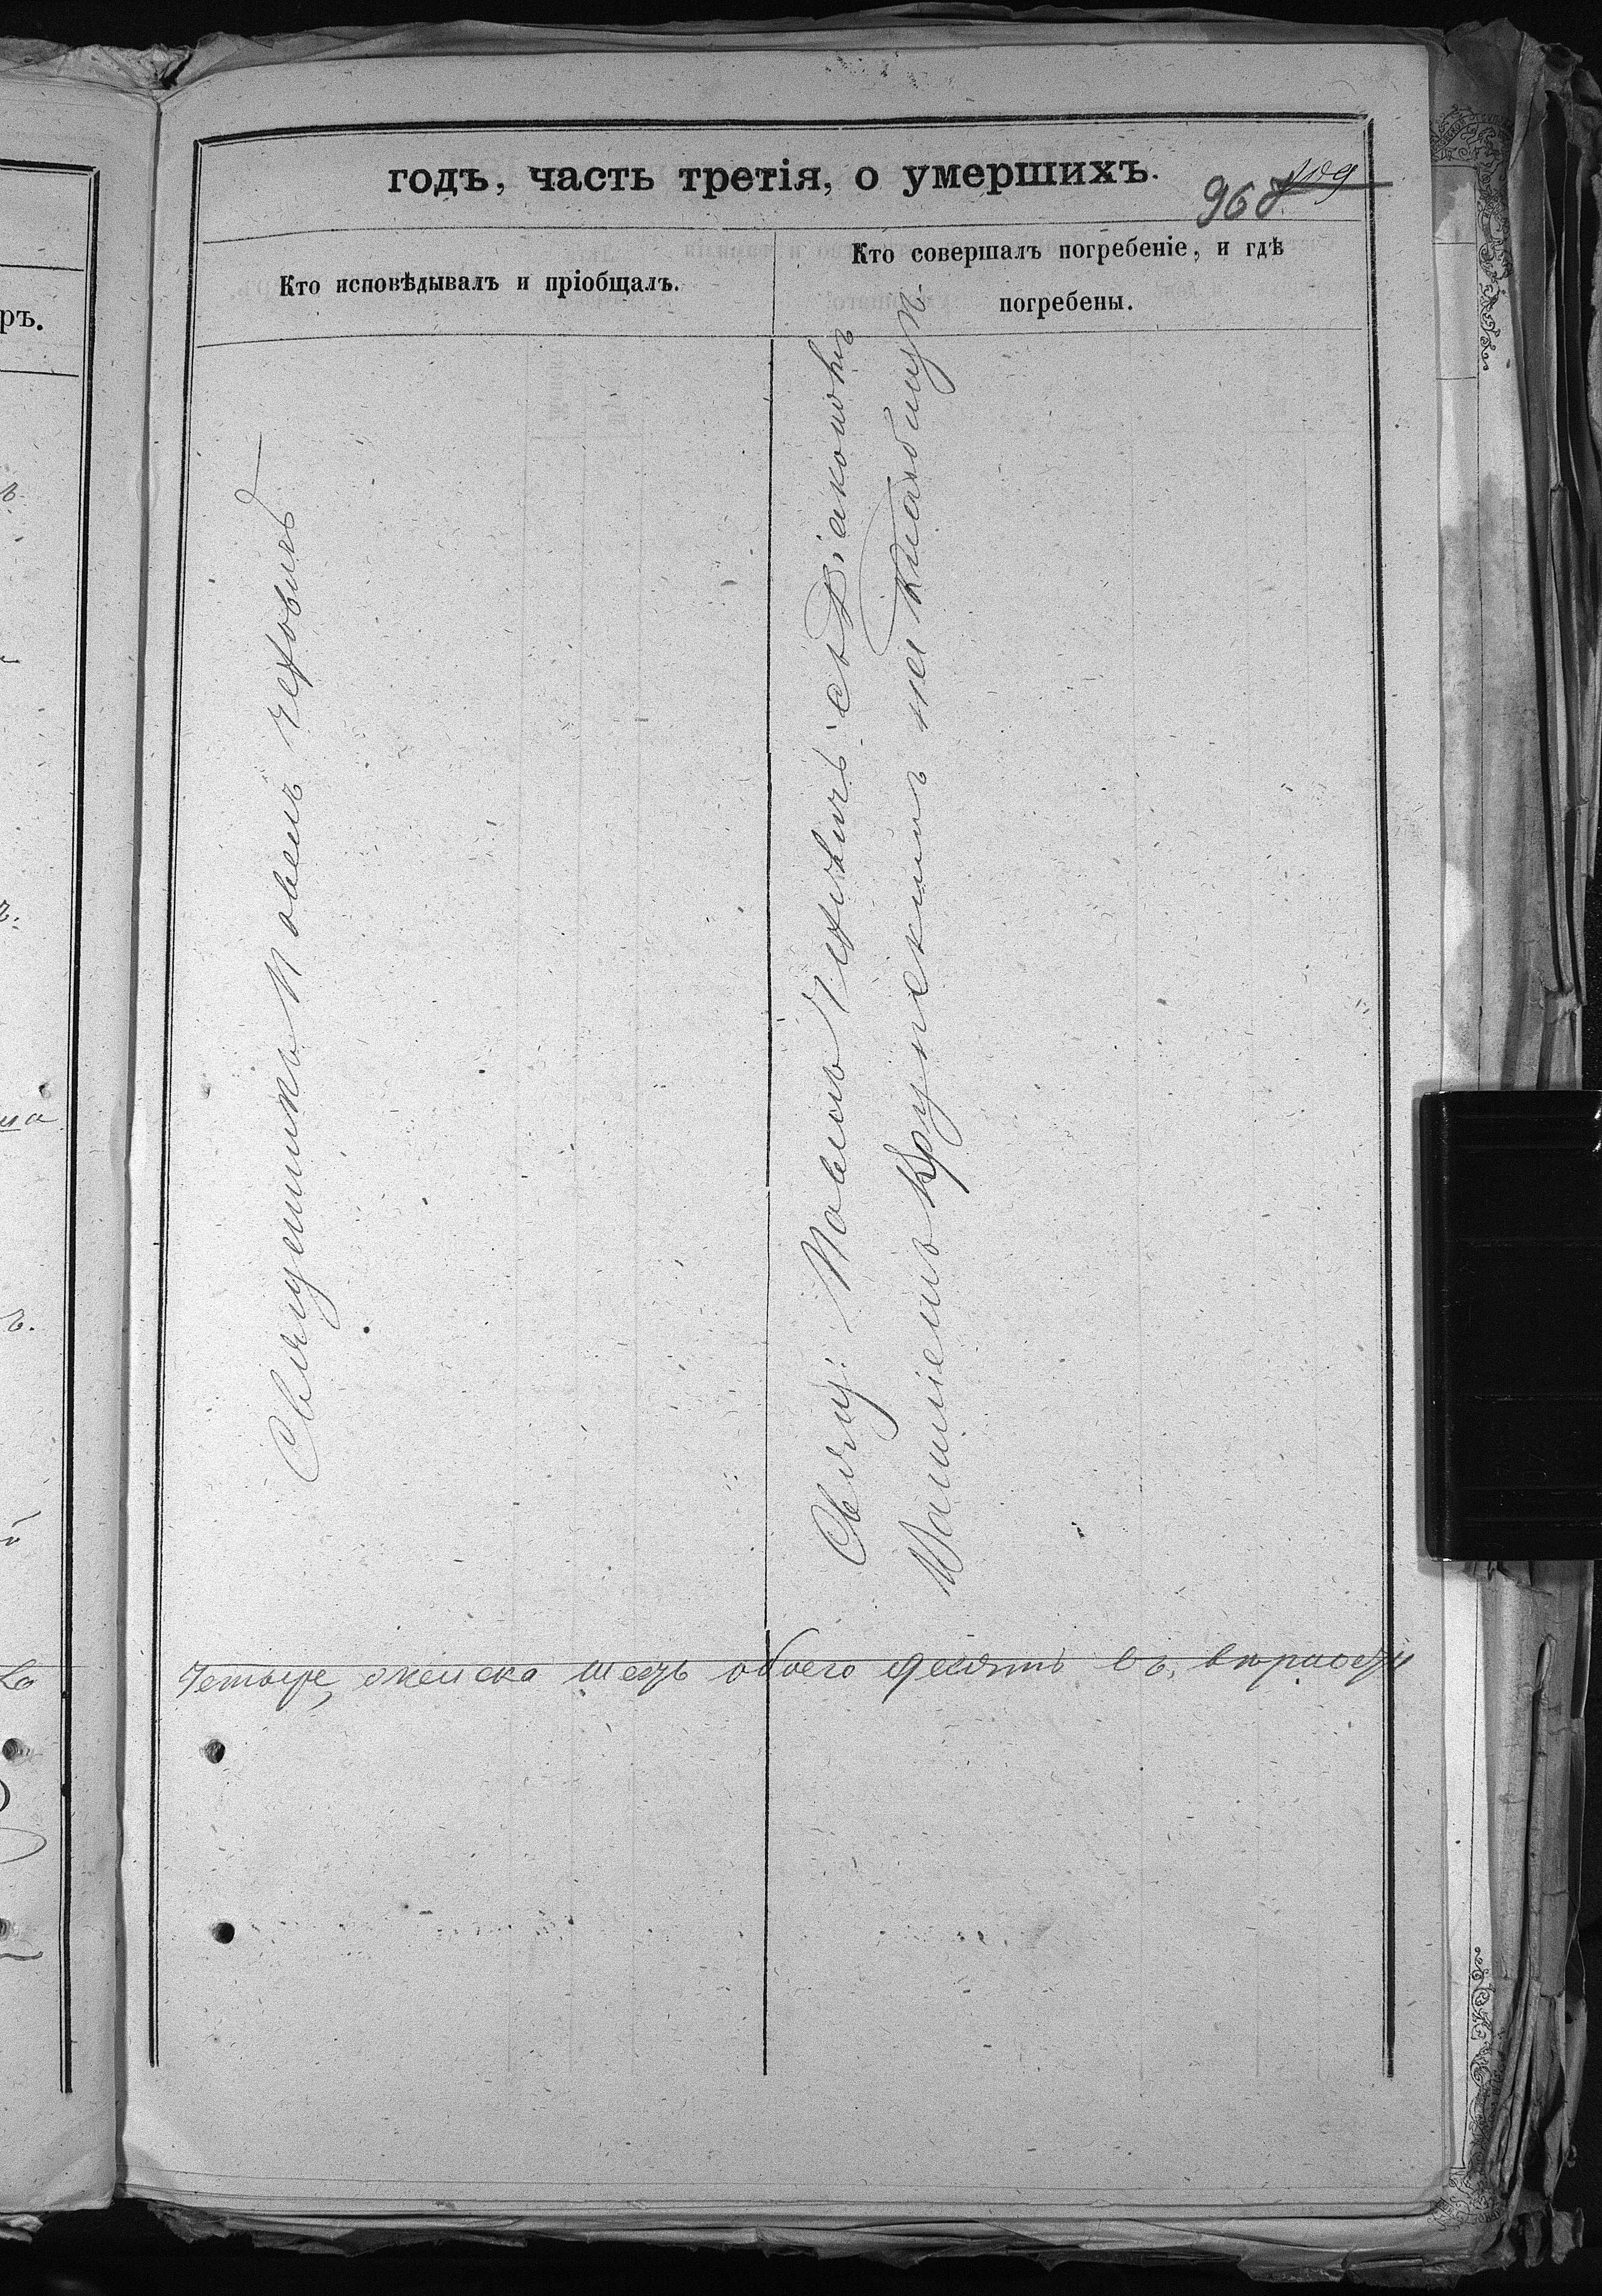 годъ, часть третія, о умершихъ.
968 109
Кто исповѣдывалъ и пріобщалъ.
Кто совершалъ погребеніе, и гдѣ
погребены.
ръ.
Священникъ Павелъ Чеховичъ
Свящ: Павелъ Чеховичъ съ Діакономъ
Крупскимъ на кладбищѣ.
Четыре, женска шесть обоего десять